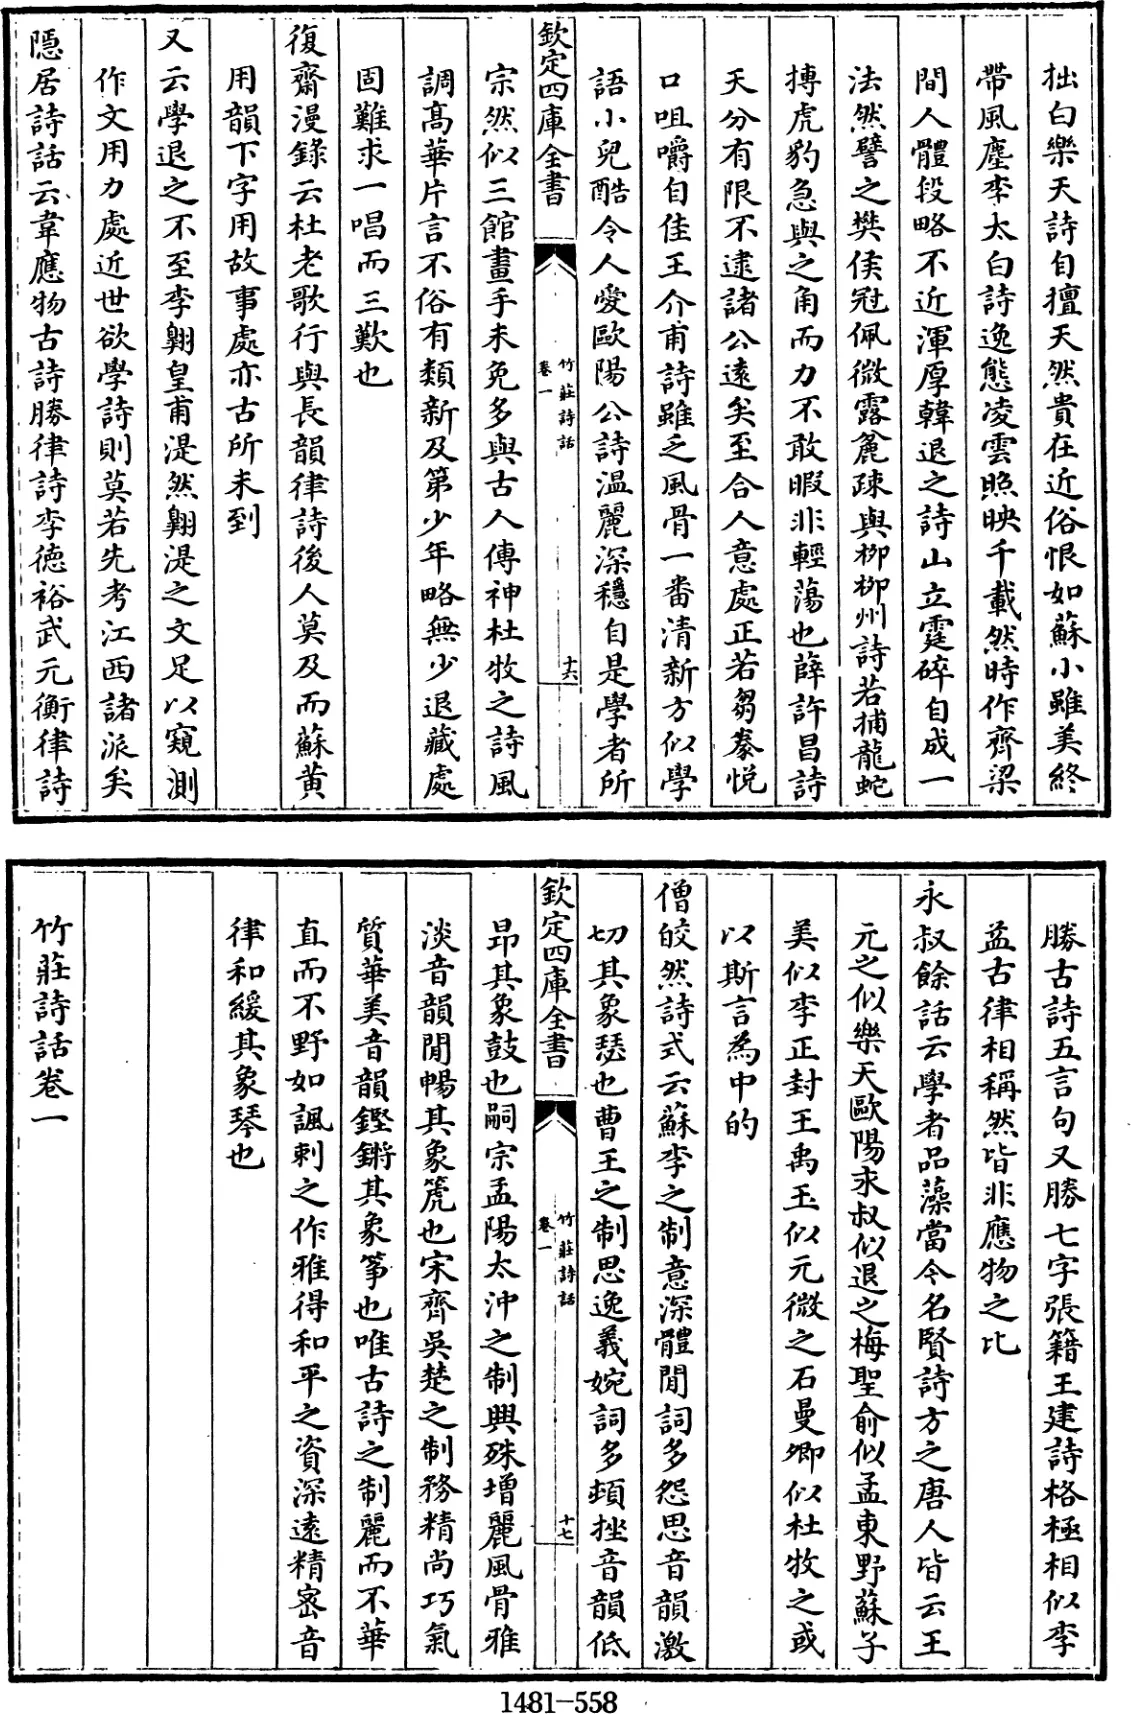 拙白樂天詩自擅天然貴在近俗恨如蘇小雖美終
帶風塵李太白詩逸態凌雲照映千載然時作齊梁
間人體段略不近渾厚韓退之詩山立霆碎自成一
法然譬之樊侯冠佩微露麄疎與柳柳州詩若捕龍蛇
搏虎豹急與之角而力不敢暇非輕蕩也薛許昌詩
天分有限不逮諸公遠矣至合人意處正若芻豢悅
口咀嚼自佳王介甫詩雖乏風骨一番清新方似學
語小兒酷令人愛歐陽公詩溫麗深穩自是學者所
欽定四庫全書
竹莊詩話
卷一
十六
宗然似三館畫手未免多與古人傳神杜牧之詩風
調高華片言不俗有類新及第少年略無少退藏處
固難求一唱而三歎也
復齋漫錄云杜老歌行與長韻律詩後人莫及而蘇黃
用韻下字用故事處亦古所未到
又云學退之不至李翺皇甫湜然翺湜之文足以窺測
作文用力處近世欲學詩則莫若先考江西諸派矣
隱居詩話云韋應物古詩勝律詩李德裕武元衡律詩
勝古詩五言句又勝七字張籍王建詩格極相似李
益古律相稱然皆非應物之比
永叔餘話云學者品藻當今名賢詩方之唐人皆云王
元之似樂天歐陽永叔似退之梅聖俞似孟東野蘇子
美似李正封王禹玉似元微之石曼卿似杜牧之或
以斯言為中的
僧皎然詩式云蘇李之制意深體閒詞多怨思音韻激
切其象瑟也曹王之制思逸義婉詞多頓挫音韻低
欽定四庫全書
竹莊詩話
卷一
十七
昂其象鼓也嗣宗孟陽太沖之制興殊增麗風骨雅
淡音韻閒暢其象箎也宋齊吳楚之制務精尚巧氣
質華美音韻鏗鏘其象箏也唯古詩之制麗而不華
直而不野如諷刺之作雅得和平之資深遠精密音
律和緩其象琴也
竹莊詩話卷一
1481-558